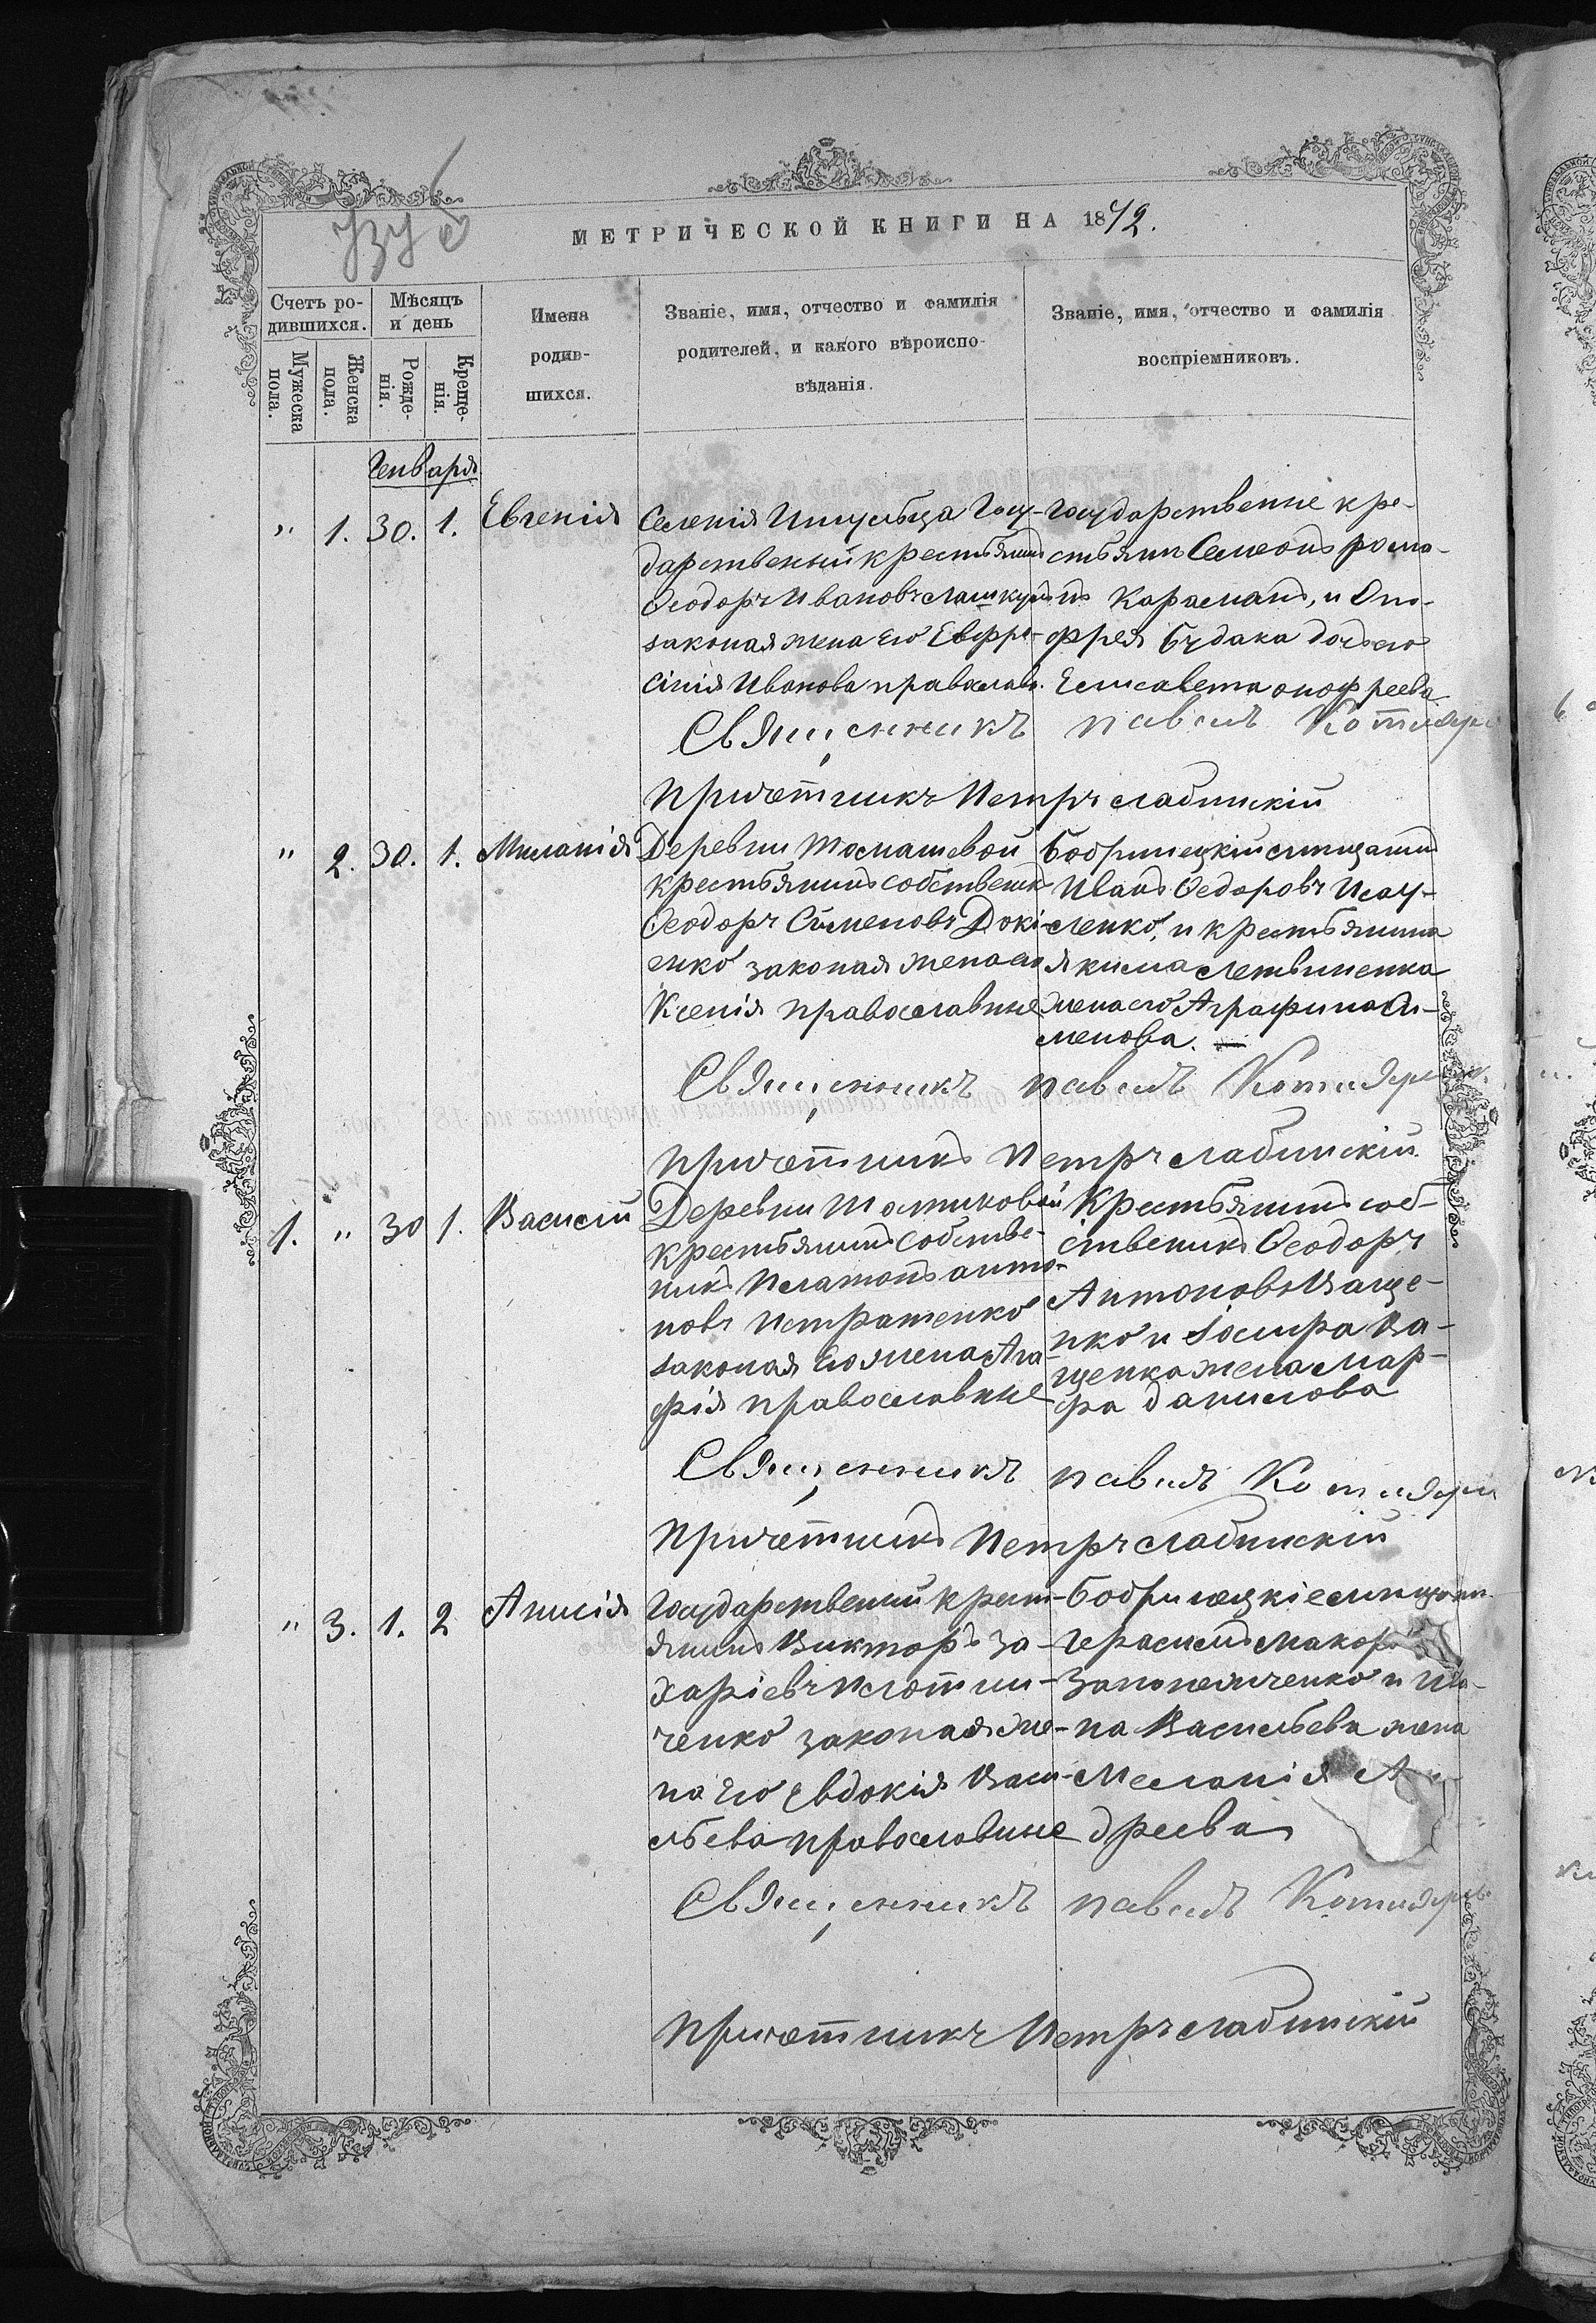 МЕТРИЧЕСКОЙ КНИГИ НА 1872.
Счетъ ро-
дившихся.
Мѣсяцъ
и день
Мужеска
пола.
Женска
пола.
Рожде-
нія.
Креще-
нія.
Имена
родив-
шихся.
Званіе, имя, отчество и фамилія
родителей, и какого вѣроиспо-
вѣданія.
Званіе, имя, отчество и фамилія
воспріемниковъ.
Генваря
" 1. 30. 1. Евгенія
Селенія Госу-
дарственый крестьянинъ
Ѳеодоръ Ивановъ
законая жена его Евфро-
синія Иванова православ.
Государственіе кре-
стьянин Симеонъ рома-
нъ Караманъ, и Оно-
фрея Будака дочь его
Елисавета онофреева
Священникъ павелъ Котляре
Причетникъ Петръ слабинскій
" 2. 30. 1. Миланія
Деревни
крестьянинъ собственик
Ѳеодоръ Сѵменовъ Докі-
енко законая жена его
Ксенія православные
Бобринецкій мещанин
Иванъ Ѳедоровъ
сленко, и крестьянина
якима Летвиненка
жена его Аграфина Си-
менова.
Священникъ павелъ Котляре
Причетникъ Петръ слабинскій
1. " 30 1. Василій
Деревни
крестьянинъ собстве-
никъ Платонъ анто-
новъ Петрашенко
законая его жена Ага-
фія православные
Крестьянинъ соб-
ственикъ Ѳеодоръ
Антоновъ Ваще-
нко и Ва-
щенка жена Мар-
фа данилова
Священникъ павелъ Котляре
Причетникъ Петръ слабинскій
" 3. 1. 2 Анисія
Государственый крест-
янинъ Викторъ За-
харіевъ Плотни-
ченко законая же-
на его Евдокія Васи-
льева православные
Бобринецкіе мещани
Герасимъ Макор
и
на Васильева жена
Меланія Ан-
дреева
Священникъ павелъ Котляре
Причетникъ Петръ слабинскій